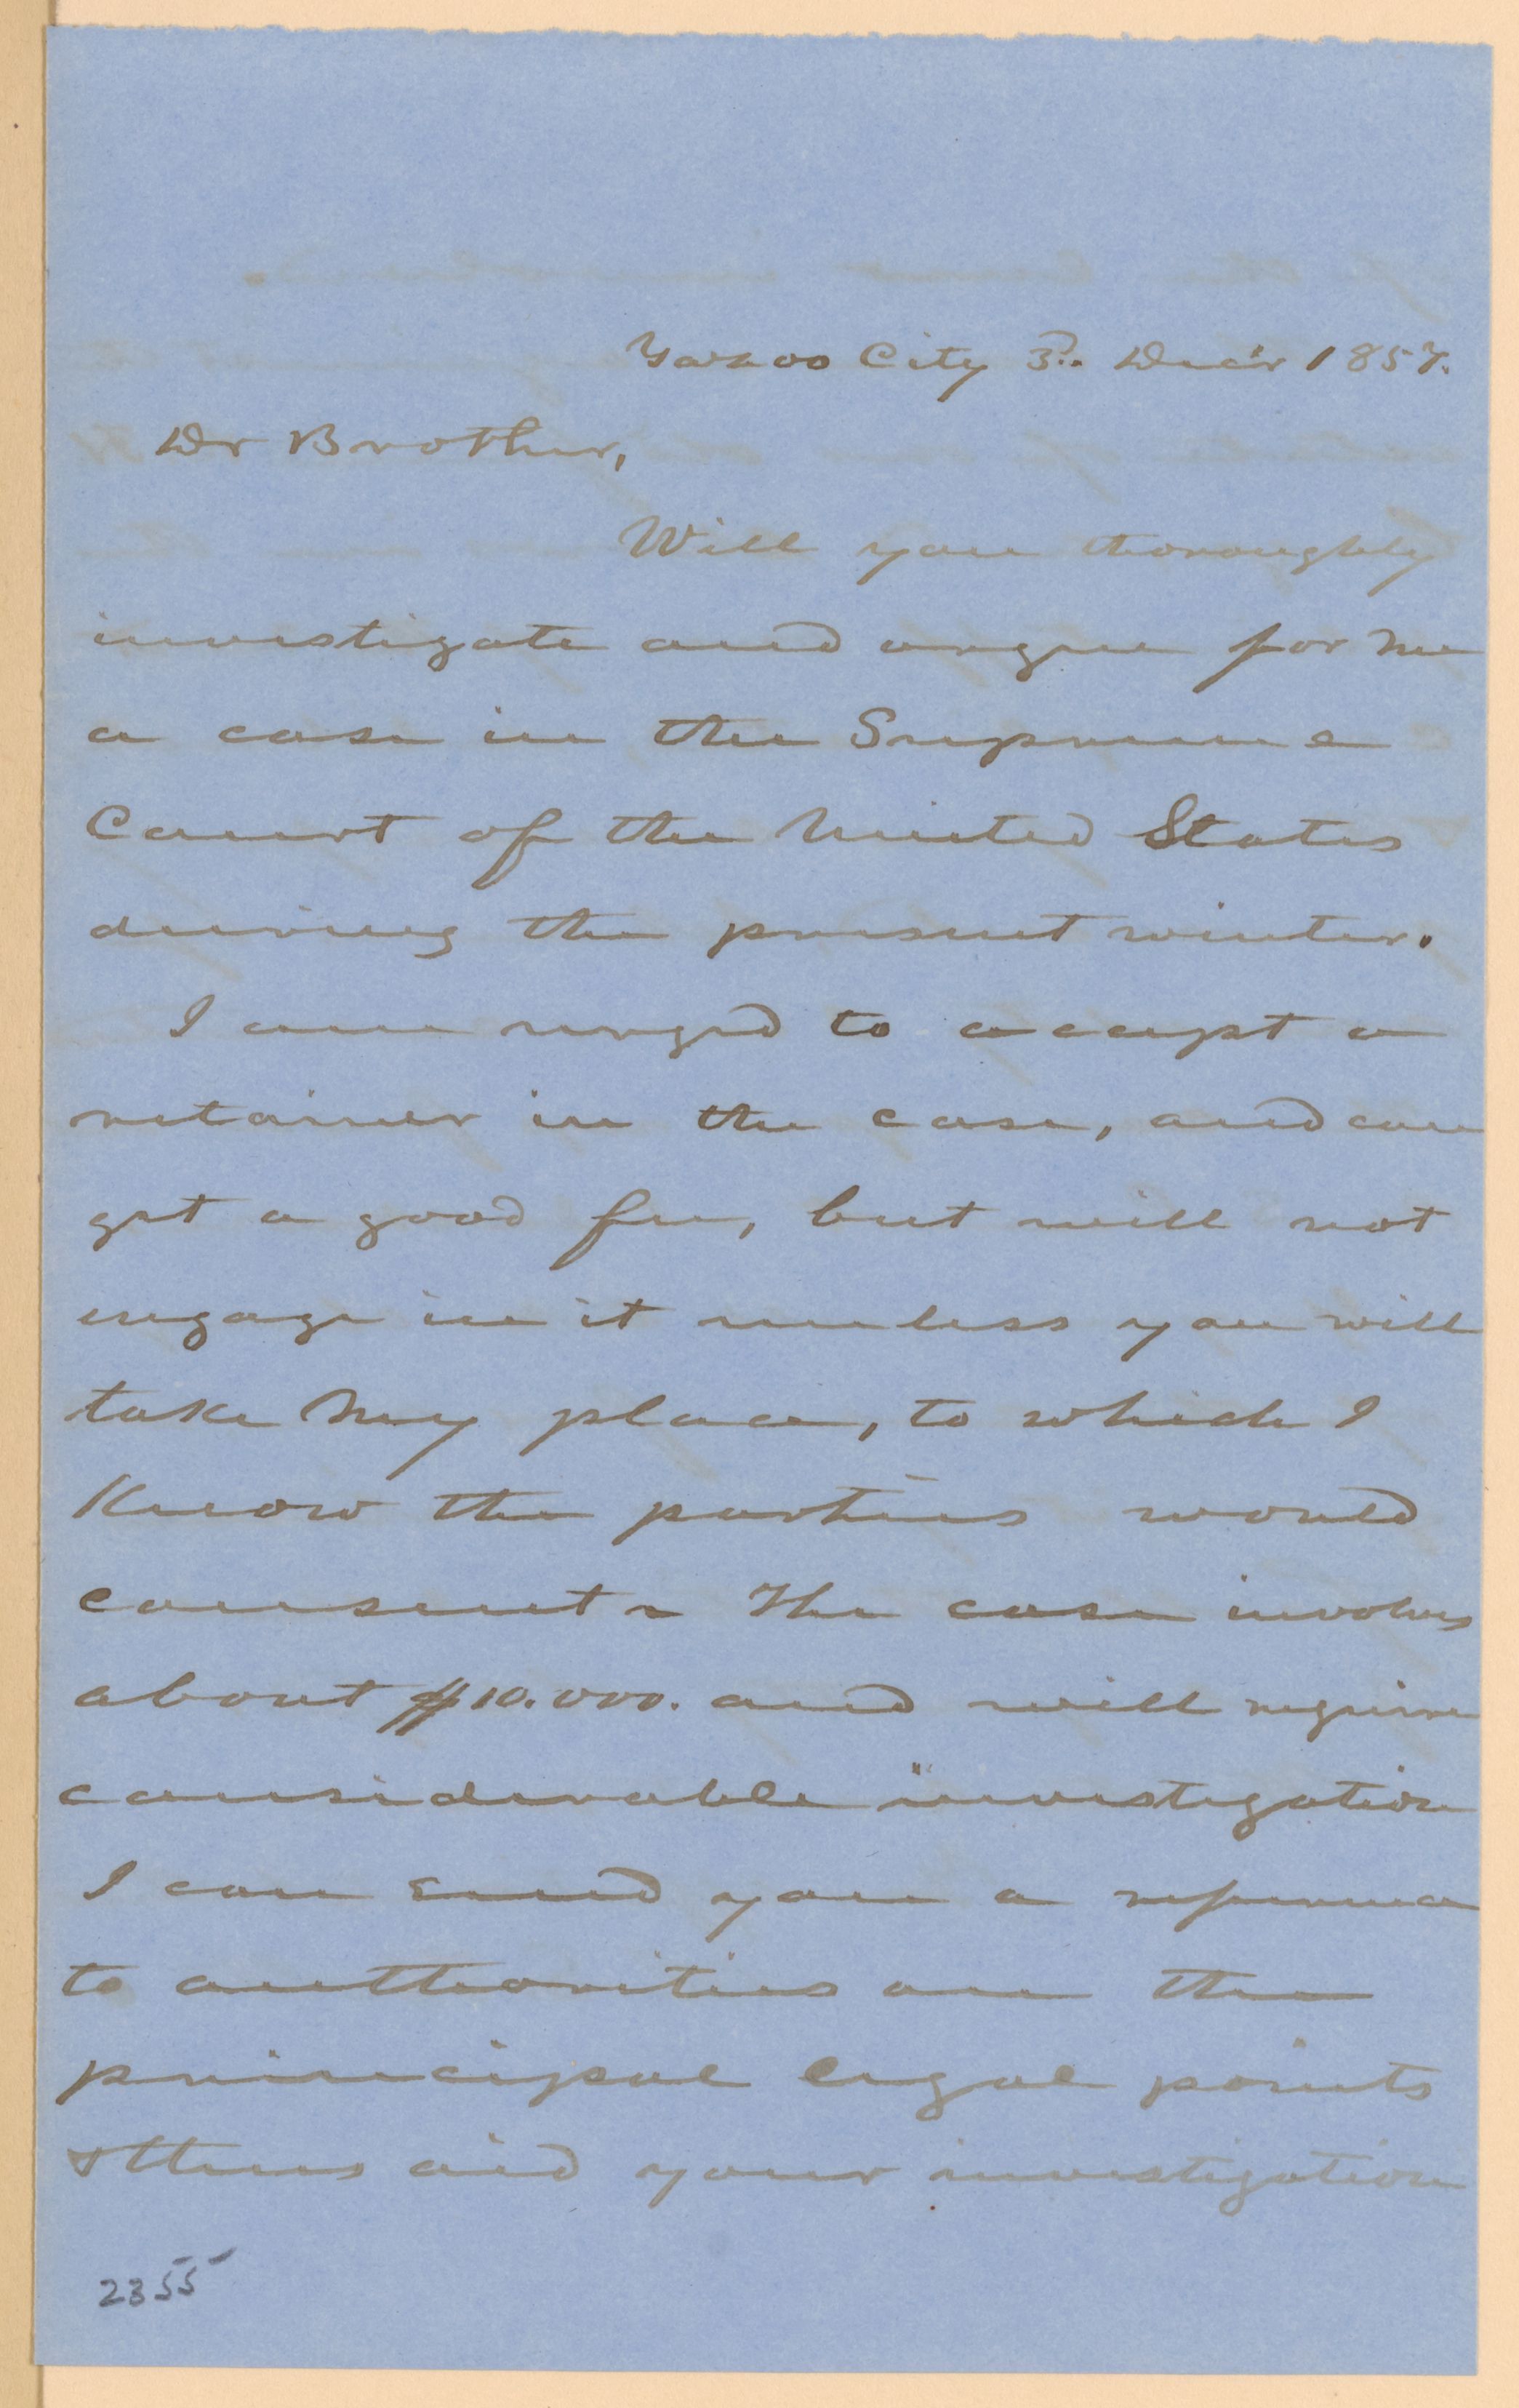 Yazoo City 3d. Dec'r 1857.
Dr Brother,
Will you thoroughly
investigate and argue for me
a case in the Supreme
Court of the United States
during the present winter.
I am urged to accept a
retainer in the case, and can
get a good fee, but will not
engage in it unless you will
take my place, to which I
know the parties would
consent - The case involves
about $10.000. and will require
considerable investigation
I can send you a reference
to authorities on the
principal legal points
& thus aid your investigation
2355